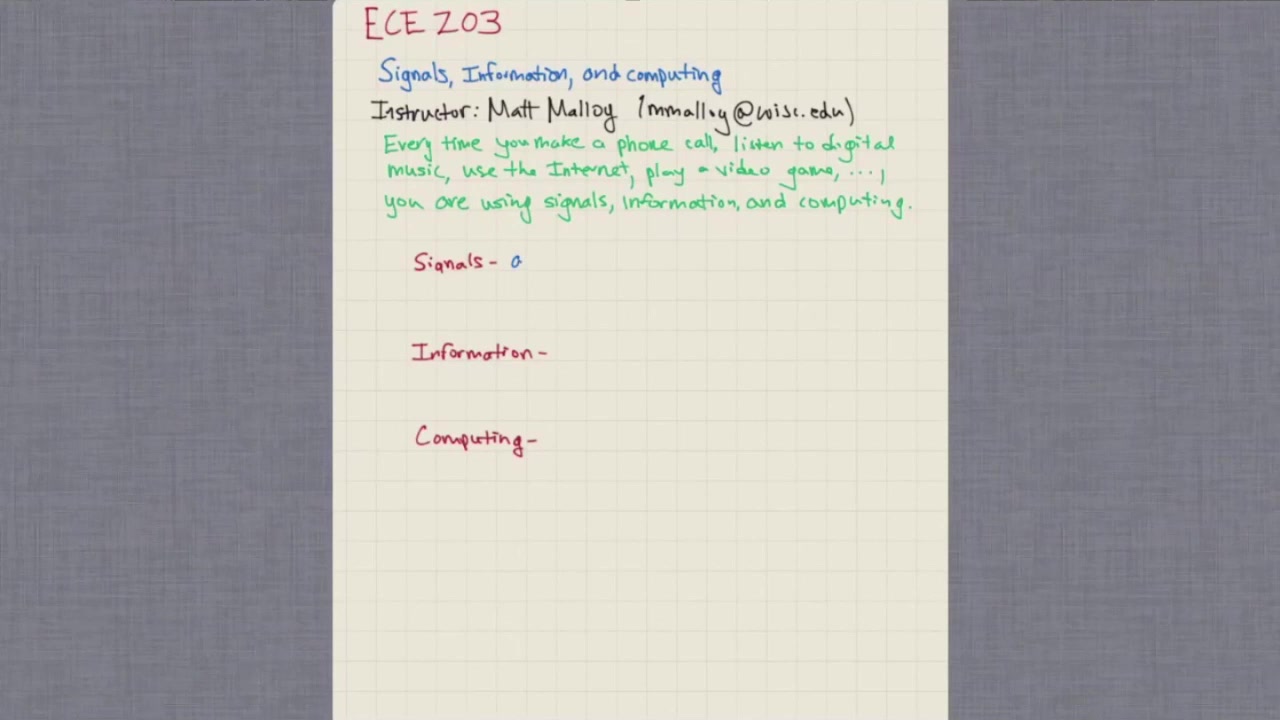 ECE 203
Signals, Information, and computing
Instructor: Matt Malloy (mmalloy@wisc.edu)
Every time you make a phone call, listen to digital
music, use the Internet, play a video game, ...,
you are using signals, information, and computing.
Signals - a
Information -
Computing -